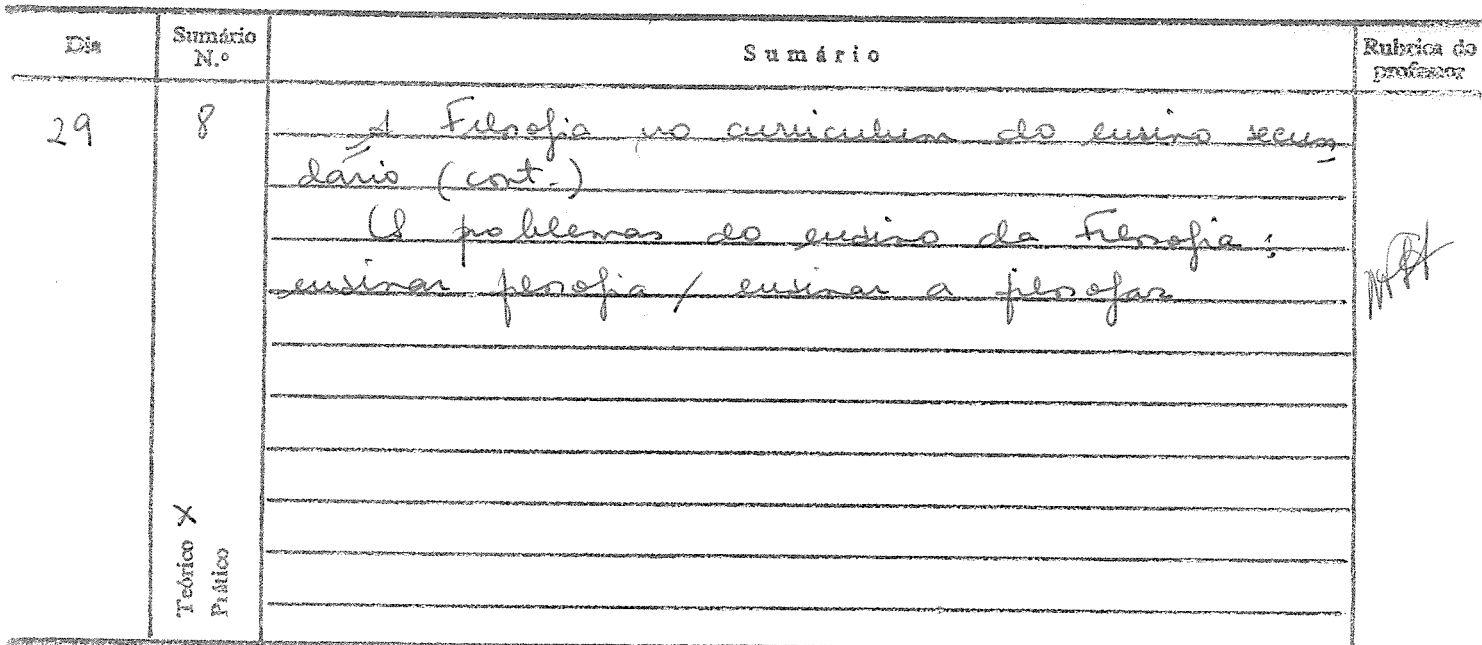 Dia
Sumário N.º
Sumário
Rubrica do professor
29
8
A Filosofia no curriculum do ensino secun
dário (cont.)
Os problemas do ensino da Filosofia:
ensinar filosofia / ensinar a filosofar
Teórico X
Prático